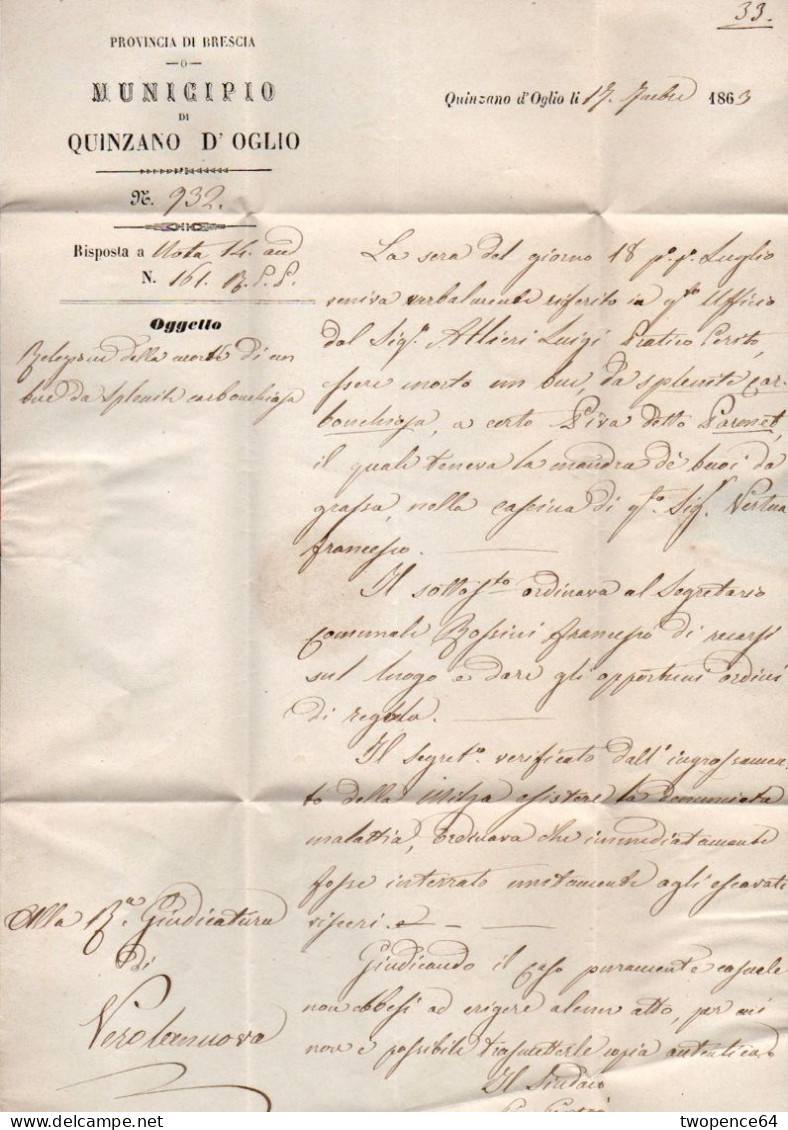 33.
PROVINCIA DI BRESCIA
MUNICIPIO
DI
QUINZANO D'OGLIO
Quinzano d'Oglio li 17. 1863
N. 932.
Risposta a Nota 14. and
N. 161. R. P. P.
Oggetto
Relazione della morte di un
bue da splenite carbonchiosa
La sera del giorno 18 p.o p.o Luglio
veniva verbalmente riferito in q.to Ufficio
dal Sig.r Altieri Luigi Pratico Perito,
essere morto un bue, da splenite car-
bonchiosa, a certo Piva detto Paronet,
il quale teneva la mandra de buoi da
grassa, nella cascina di q.to Sig.r Vertua
Francesco.
Il sottos.to ordinava al Segretario
Comunale Rossini Francesco di recarsi
sul luogo e dare gli opportuni ordini
di regola.
Il segret.o verificato dall'ingrossamen-
to della milza esistere la denunciata
malattia, ordinava che immediatamente
fosse interrato unitamente agli escavati
visceri.
Giudicando il caso puramente casuale
non ebbesi ad erigere alcun atto, per cui
non è possibile trasmetterle copia
Il Sindaco
Alla R.a Giudicatura
di
Verolanuova
twopence64